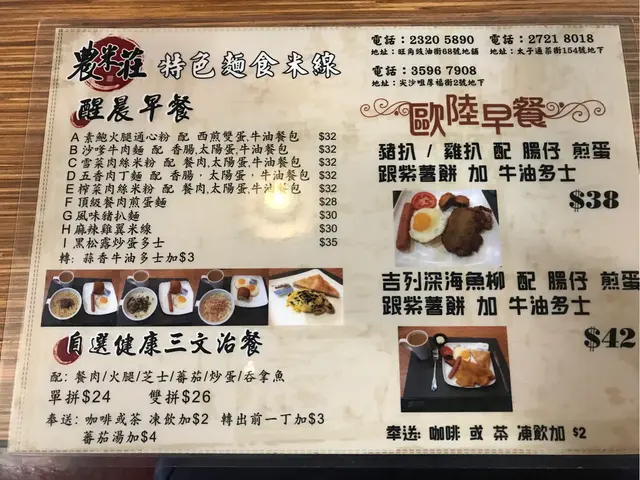 農米莊 特色麵食米線
電話：2320 5890
地址：旺角豉油街68號地舖
電話：2721 8018
地址：太子通菜街154號地下
電話：3596 7908
地址：尖沙咀厚福街2號地下
醒晨早餐
A 素鮑火腿通心粉 配 西煎雙蛋,牛油餐包 $32
B 沙嗲牛肉麵 配 香腸,太陽蛋,牛油餐包 $32
C 雪菜肉絲米粉 配 餐肉,太陽蛋,牛油餐包 $32
D 五香肉丁麵 配 香腸，太陽蛋，牛油餐包 $32
E 榨菜肉絲米粉 配 餐肉,太陽蛋,牛油餐包 $32
F 頂級餐肉煎蛋麵 $28
G 風味豬扒麵 $30
H 麻辣雞翼米線 $30
I 黑松露炒蛋多士 $35
轉: 蒜香牛油多士加$3
自選健康三文治餐
配: 餐肉/火腿/芝士/蕃茄/炒蛋/吞拿魚
單拼$24 雙拼$26
奉送: 咖啡或茶 凍飲加$2 轉出前一丁加$3
蕃茄湯加$4
歐陸早餐
豬扒 / 雞扒 配 腸仔 煎蛋
跟紫薯餅 加 牛油多士
$38
吉列深海魚柳 配 腸仔 煎蛋
跟紫薯餅 加 牛油多士
$42
奉送: 咖啡 或 茶 凍飲加 $2